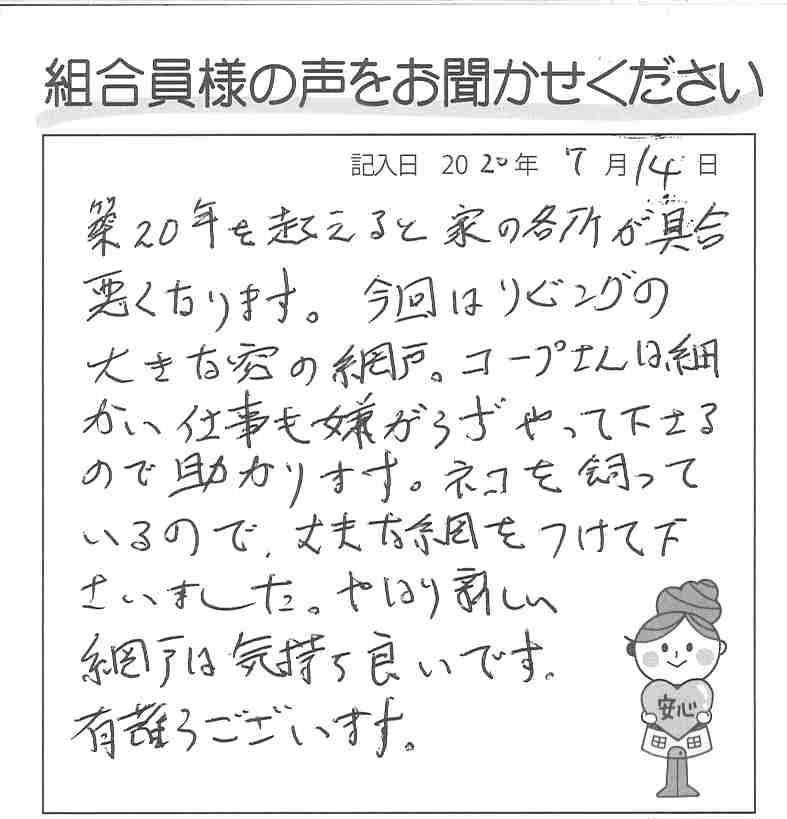 組合員様の声をお聞かせください
記入日 2020年 7月14日
築20年を超えると家の各所が具合
悪くなります。今回はリビングの
大きな窓の網戸。コープさんは細
かい仕事も嫌がらずやって下さる
ので助かります。ネコを飼って
いるので、丈夫な網をつけて下
さいました。やはり新しい
網戸は気持ち良いです。
有難うございます。
安心